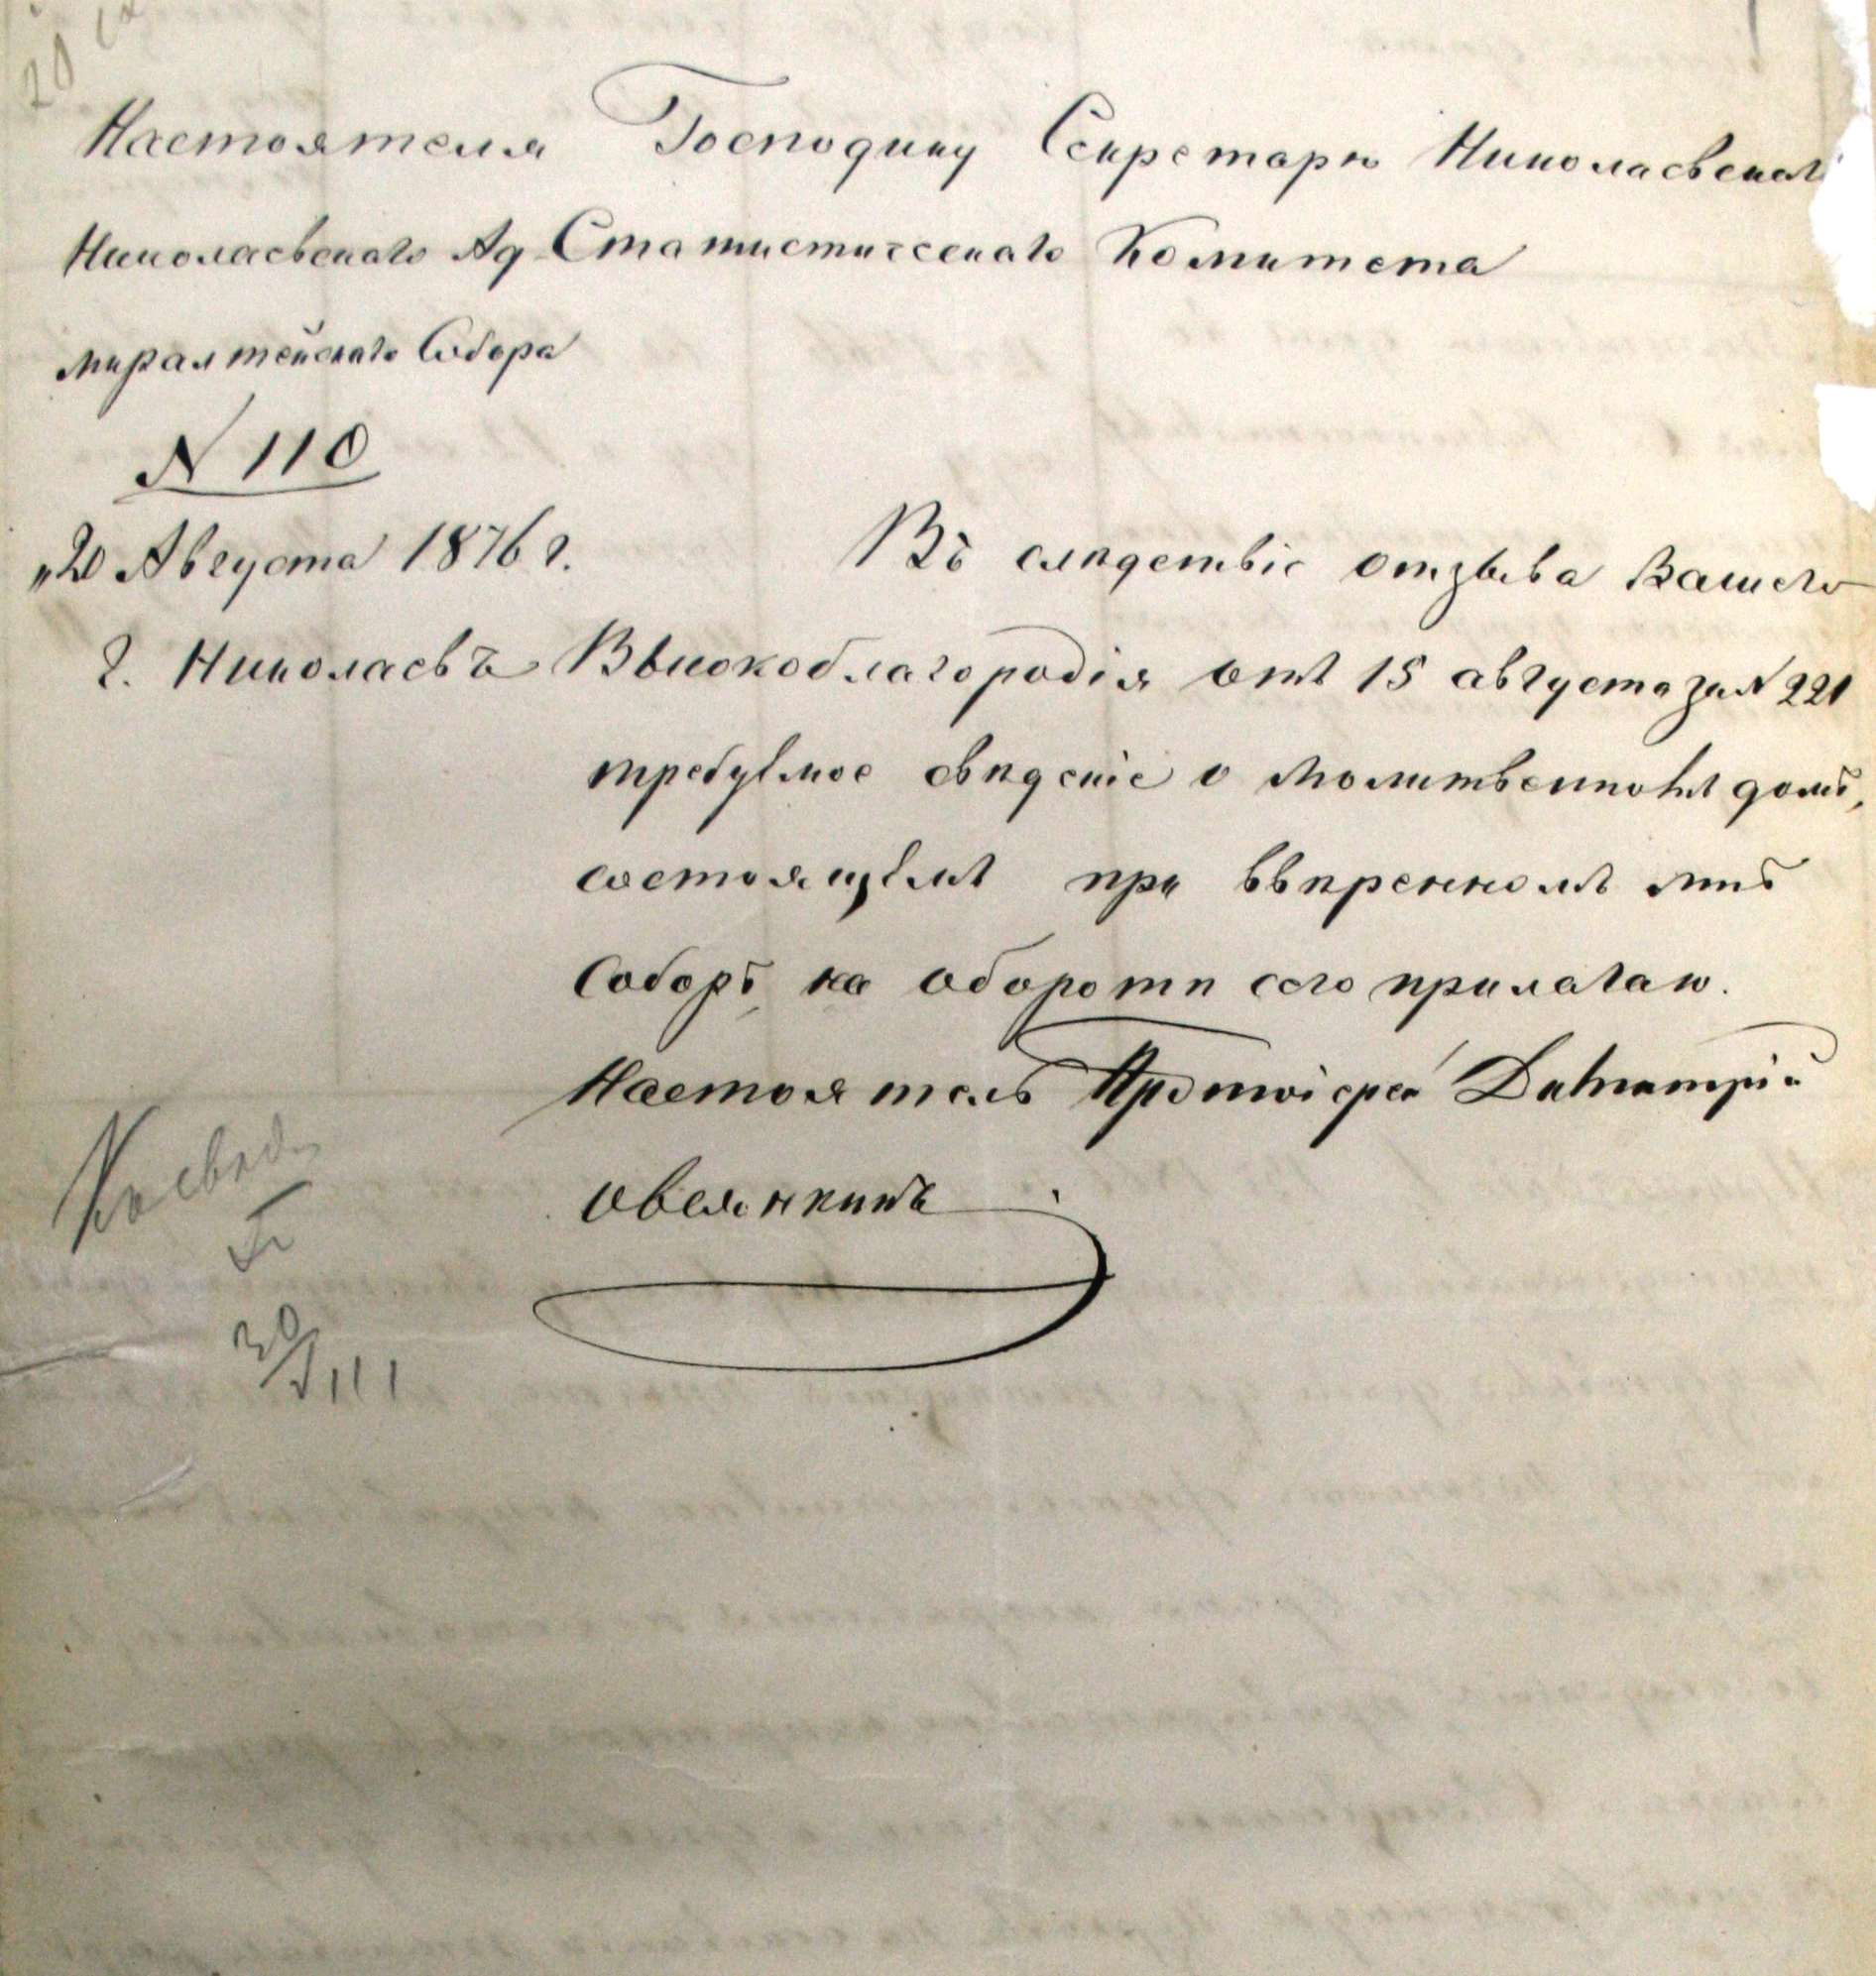 20
Настоятеля Господину Секретарю Николаевскаго
Николаевскаго Ад Статистическаго Комитета
миралтейскаго Собора
N 110
„20 Августа 1876 г. Въ слѣдствіе отзыва Вашего
г. Николаевъ Высокоблагородія отъ 15 августа за N 221
требуемое свѣденіе о Молитвенномъ домѣ,
состоящемъ при ввѣренномъ мнѣ
Соборѣ, на оборотѣ сего прилагаю.
Настоятель Протоіерей Димитрій
Овсянкинъ
Къ свед.
20/VIII